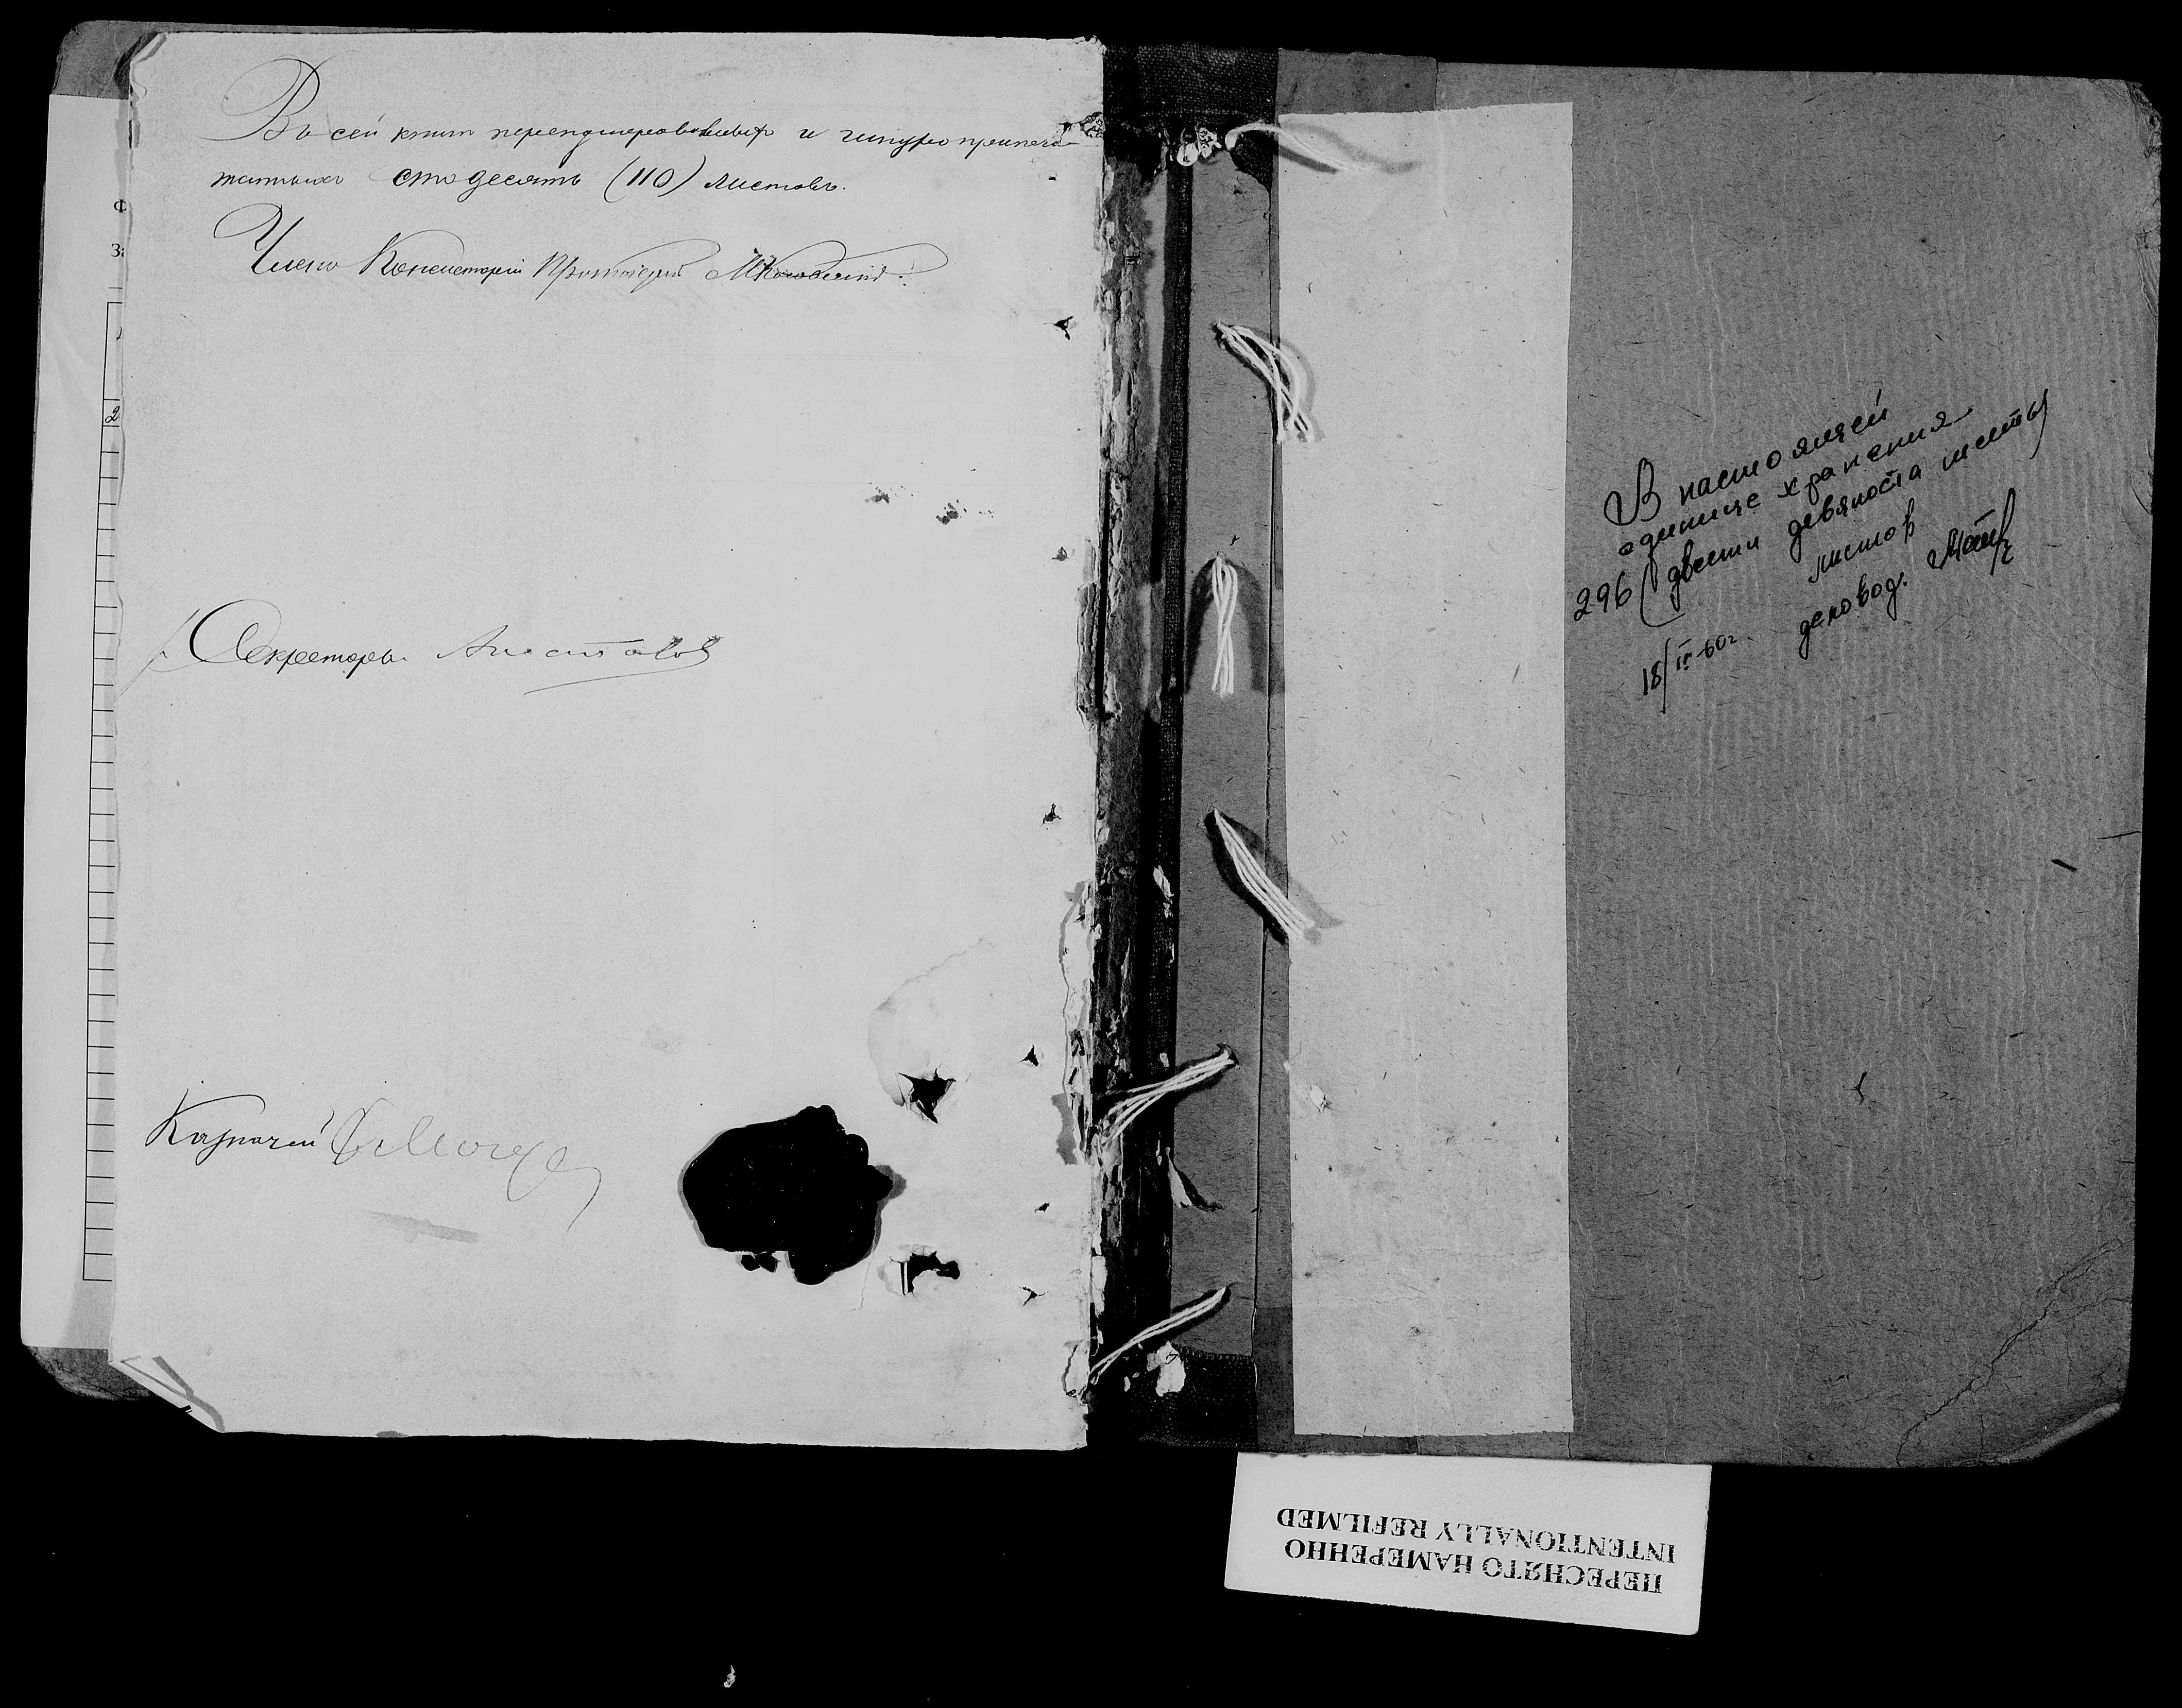 Въ сей книгѣ перенумерованныхъ и шнуроприпеча-
танныхъ сто десять (110) листовъ.
Членъ Консисторіи Протоіерей
Секретарь
Казначей
2
В настоящей
единице хранения
296 (двести девяноста шесть)
листов
18/IV-60г. деловод.
ПЕРЕСНЯТО НАМЕРЕННО
INTENTIONALLY REFILMED